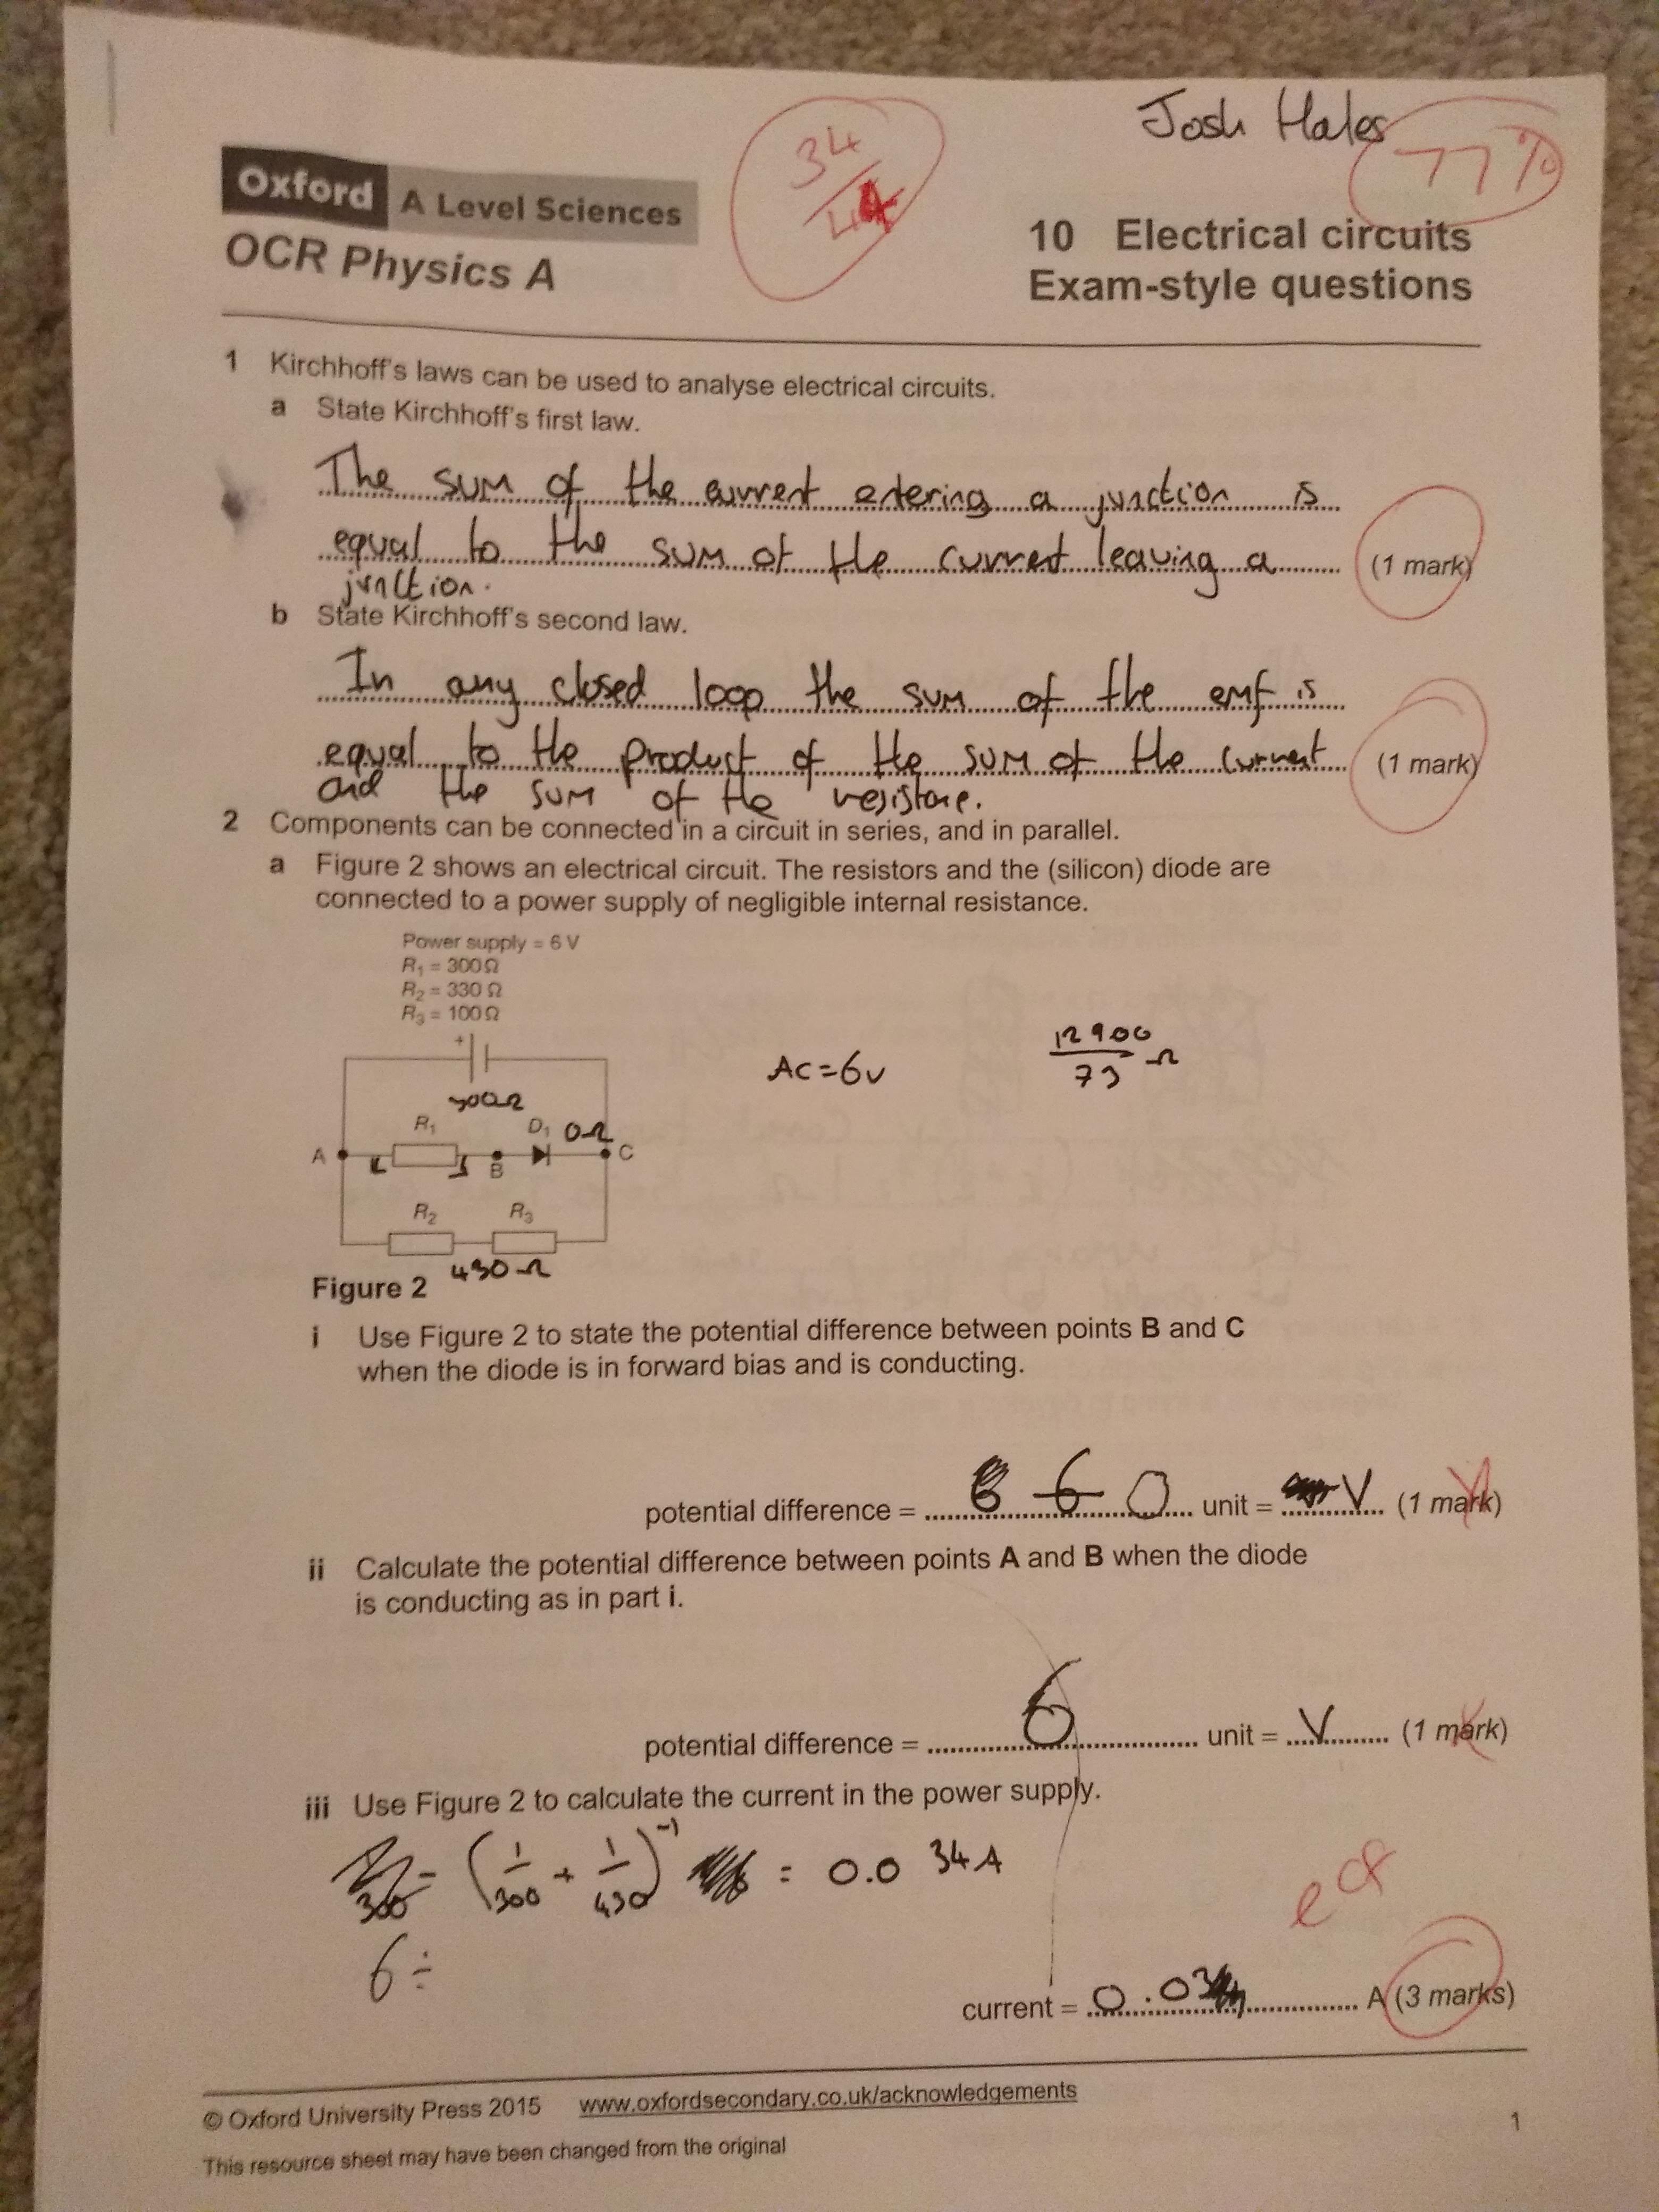 Josh Hales
34
44
77%
Oxford A Level Sciences
OCR Physics A
10 Electrical circuits
Exam-style questions
1 Kirchhoff's laws can be used to analyse electrical circuits.
a State Kirchhoff's first law.
The sum of the current entering a junction is
equal to the sum of the current leaving a (1 mark)
junction.
b State Kirchhoff's second law.
In any closed loop the sum of the emf is
equal to the product of the sum of the current (1 mark)
and the sum of the resistance.
2 Components can be connected in a circuit in series, and in parallel.
a Figure 2 shows an electrical circuit. The resistors and the (silicon) diode are
connected to a power supply of negligible internal resistance.
Power supply = 6 V
R1 = 300 Ω
R2 = 330 Ω
R3 = 100 Ω
+
AC = 6v
12900
73 Ω
300Ω
R1 D1 0Ω
A B C
R2 R3
430Ω
Figure 2
i Use Figure 2 to state the potential difference between points B and C
when the diode is in forward bias and is conducting.
potential difference = 6 0 unit = V (1 mark)
ii Calculate the potential difference between points A and B when the diode
is conducting as in part i.
potential difference = 6 unit = V (1 mark)
iii Use Figure 2 to calculate the current in the power supply.
(1/300 + 1/430)^-1 = 0.034A
6 ÷
ecf
current = 0.03 A (3 marks)
© Oxford University Press 2015 www.oxfordsecondary.co.uk/acknowledgements
1
This resource sheet may have been changed from the original